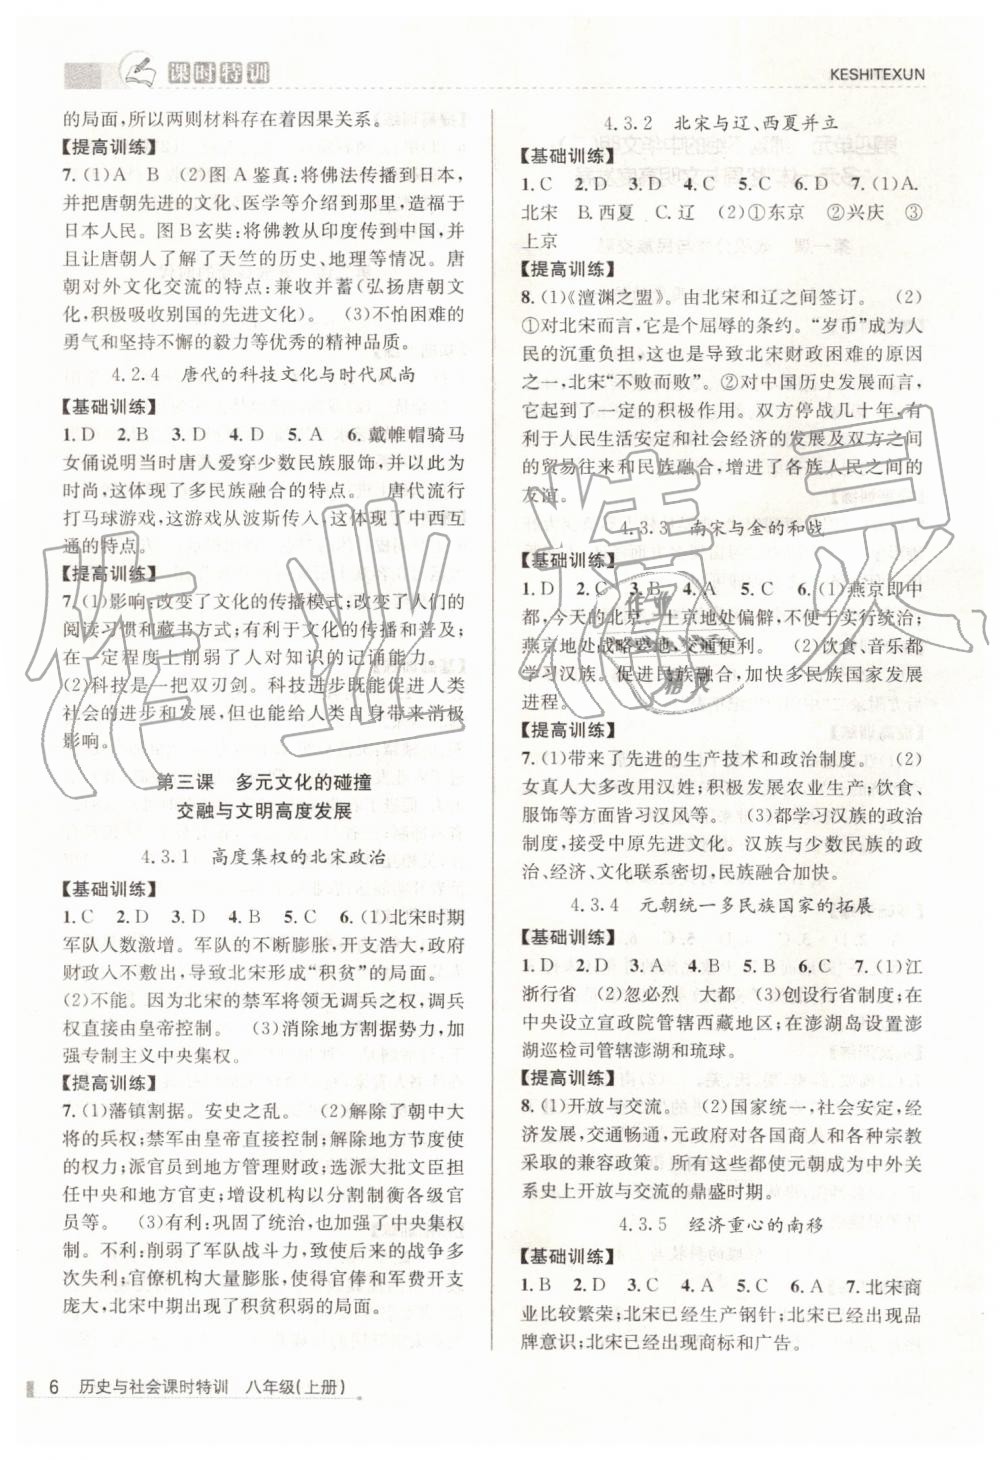 课时特训
KESHITEXUN
的局面,所以两则材料存在着因果关系。
【提高训练】
7. (1)A　B　(2)图 A 鉴真;将佛法传播到日本,
并把唐朝先进的文化、医学等介绍到那里,造福于
日本人民。图 B 玄奘;将佛教从印度传到中国,并
且让唐朝人了解了天竺的历史、地理等情况。唐
朝对外文化交流的特点:兼收并蓄(弘扬唐朝文
化,积极吸收别国的先进文化)。　(3)不怕困难的
勇气和坚持不懈的毅力等优秀的精神品质。
4.2.4　唐代的科技文化与时代风尚
【基础训练】
1. D　2. B　3. D　4. D　5. A　6. 戴帷帽骑马
女俑说明当时唐人爱穿少数民族服饰,并以此为
时尚,这体现了多民族融合的特点。　唐代流行
打马球游戏,这游戏从波斯传入,体现了中西互
通的特点。
【提高训练】
7. (1)影响:改变了文化的传播模式;改变了人们的
阅读习惯和藏书方式;有利于文化的传播和普及;
在一定程度上削弱了人对知识的记诵能力。
(2)科技是一把双刃剑。科技进步既能促进人类
社会的进步和发展,但也能给人类自身带来消极
影响。
第三课　多元文化的碰撞
交融与文明高度发展
4.3.1　高度集权的北宋政治
【基础训练】
1. C　2. D　3. D　4. B　5. C　6. (1)北宋时期
军队人数激增。军队的不断膨胀,开支浩大,政府
财政入不敷出,导致北宋出现“积贫”的局面。
(2)不能。因为北宋的禁军将领无调兵之权,调兵
权直接由皇帝控制。　(3)消除地方割据势力,加
强专制主义中央集权。
【提高训练】
7. (1)藩镇割据。安史之乱。　(2)解除了朝中大
将的兵权;禁军由皇帝直接控制;解除地方节度使
的权力;派官员到地方管理财政;选派大批文臣担
任中央和地方官吏;增设机构以分割制衡各级官
员等。　(3)有利:巩固了统治,也加强了中央集权
制。不利:削弱了军队战斗力,致使后来的战争多
次失利;官僚机构大量膨胀,使得官俸和军费开支
庞大,北宋中期出现了积贫积弱的局面。
4.3.2　北宋与辽、西夏并立
【基础训练】
1. C　2. D　3. D　4. C　5. C　6. D　7. (1)A.
北宋　B. 西夏　C. 辽　(2)①东京　②兴庆　③
上京
【提高训练】
8. (1)《澶渊之盟》。由北宋和辽之间签订。　(2)
①对北宋而言,它是个屈辱的条约。“岁币”成为人
民的沉重负担,这也是导致北宋财政困难的原因
之一,北宋“不败而败”。②对中国历史发展而言,
它起到了一定的积极作用。双方停战几十年,有
利于人民生活安定和社会经济的发展及双方之间
的贸易往来和民族融合,增进了各族人民之间的
友谊。
4.3.3　南宋与金的和战
【基础训练】
1. D　2. C　3. B　4. A　5. C　6. (1)燕京即中
都,今天的北京。上京地处偏僻,不便实行统治;
燕京地处战略要地,交通便利。　(2)饮食、音乐都
学习汉族。　(3)促进民族融合,加快多民族国家发展
进程。
【提高训练】
7. (1)带来了先进的生产技术和政治制度。　(2)
女真人大多改用汉姓,积极发展农业生产;衣、食、
饮食等方面皆习汉风等。　(3)都学习汉族的政治
制度,接受中原先进文化。汉族与少数民族的政
治、经济、文化联系密切,民族融合加快。
4.3.4　元朝统一多民族国家的拓展
【基础训练】
1. D　2. D　3. A　4. B　5. B　6. C　7. (1)江
浙行省　(2)忽必烈　大都　(3)创设行省制度;在
中央设立宣政院管辖西藏地区;在澎湖岛设置澎
湖巡检司管辖澎湖和琉球。
【提高训练】
8. (1)开放与交流。　(2)国家统一,社会安定,经
济发展,交通畅通,元政府对各国商人和各种宗教
采取的兼容政策。所有这些都使元朝成为中外关
系史上开放与交流的鼎盛时期。
4.3.5　经济重心的南移
【基础训练】
1. B　2. D　3. C　4. A　5. C　6. A　7. 北宋商
业比较繁荣;北宋已经生产钢针;北宋已经出现品
牌意识;北宋已经出现商标和广告。
6　历史与社会课时特训　八年级(上册)
作业精灵